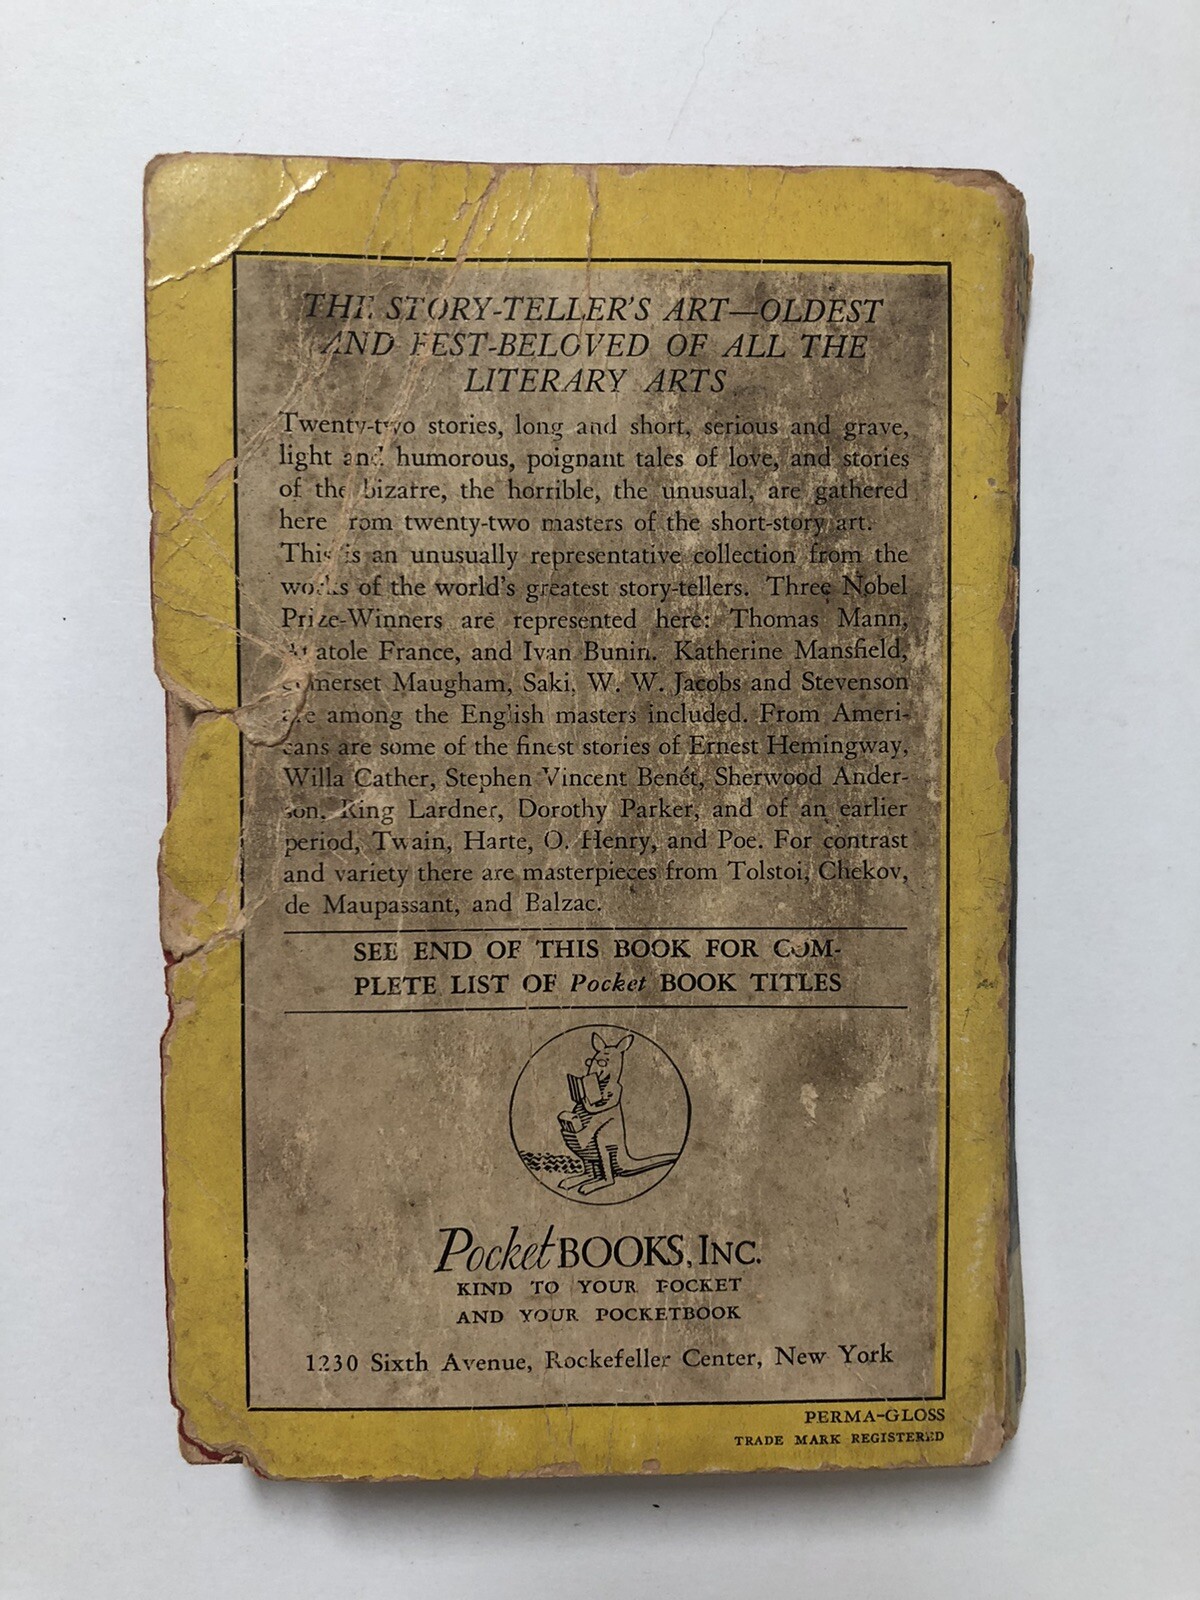 THE STORY-TELLER'S ART—OLDEST
AND BEST-BELOVED OF ALL THE
LITERARY ARTS
Twenty-two stories, long and short, serious and grave,
light and humorous, poignant tales of love, and stories
of the bizarre, the horrible, the unusual, are gathered
here from twenty-two masters of the short-story art.
This is an unusually representative collection from the
works of the world's greatest story-tellers. Three Nobel
Prize-Winners are represented here: Thomas Mann,
Anatole France, and Ivan Bunin. Katherine Mansfield,
Somerset Maugham, Saki, W. W. Jacobs and Stevenson
are among the English masters included. From Ameri-
cans are some of the finest stories of Ernest Hemingway,
Willa Cather, Stephen Vincent Benét, Sherwood Ander-
son, Ring Lardner, Dorothy Parker, and of an earlier
period, Twain, Harte, O. Henry, and Poe. For contrast
and variety there are masterpieces from Tolstoi, Chekov,
de Maupassant, and Balzac.
SEE END OF THIS BOOK FOR COM-
PLETE LIST OF Pocket BOOK TITLES
Pocket BOOKS, INC.
KIND TO YOUR POCKET
AND YOUR POCKETBOOK
1230 Sixth Avenue, Rockefeller Center, New York
PERMA-GLOSS
TRADE MARK REGISTERED